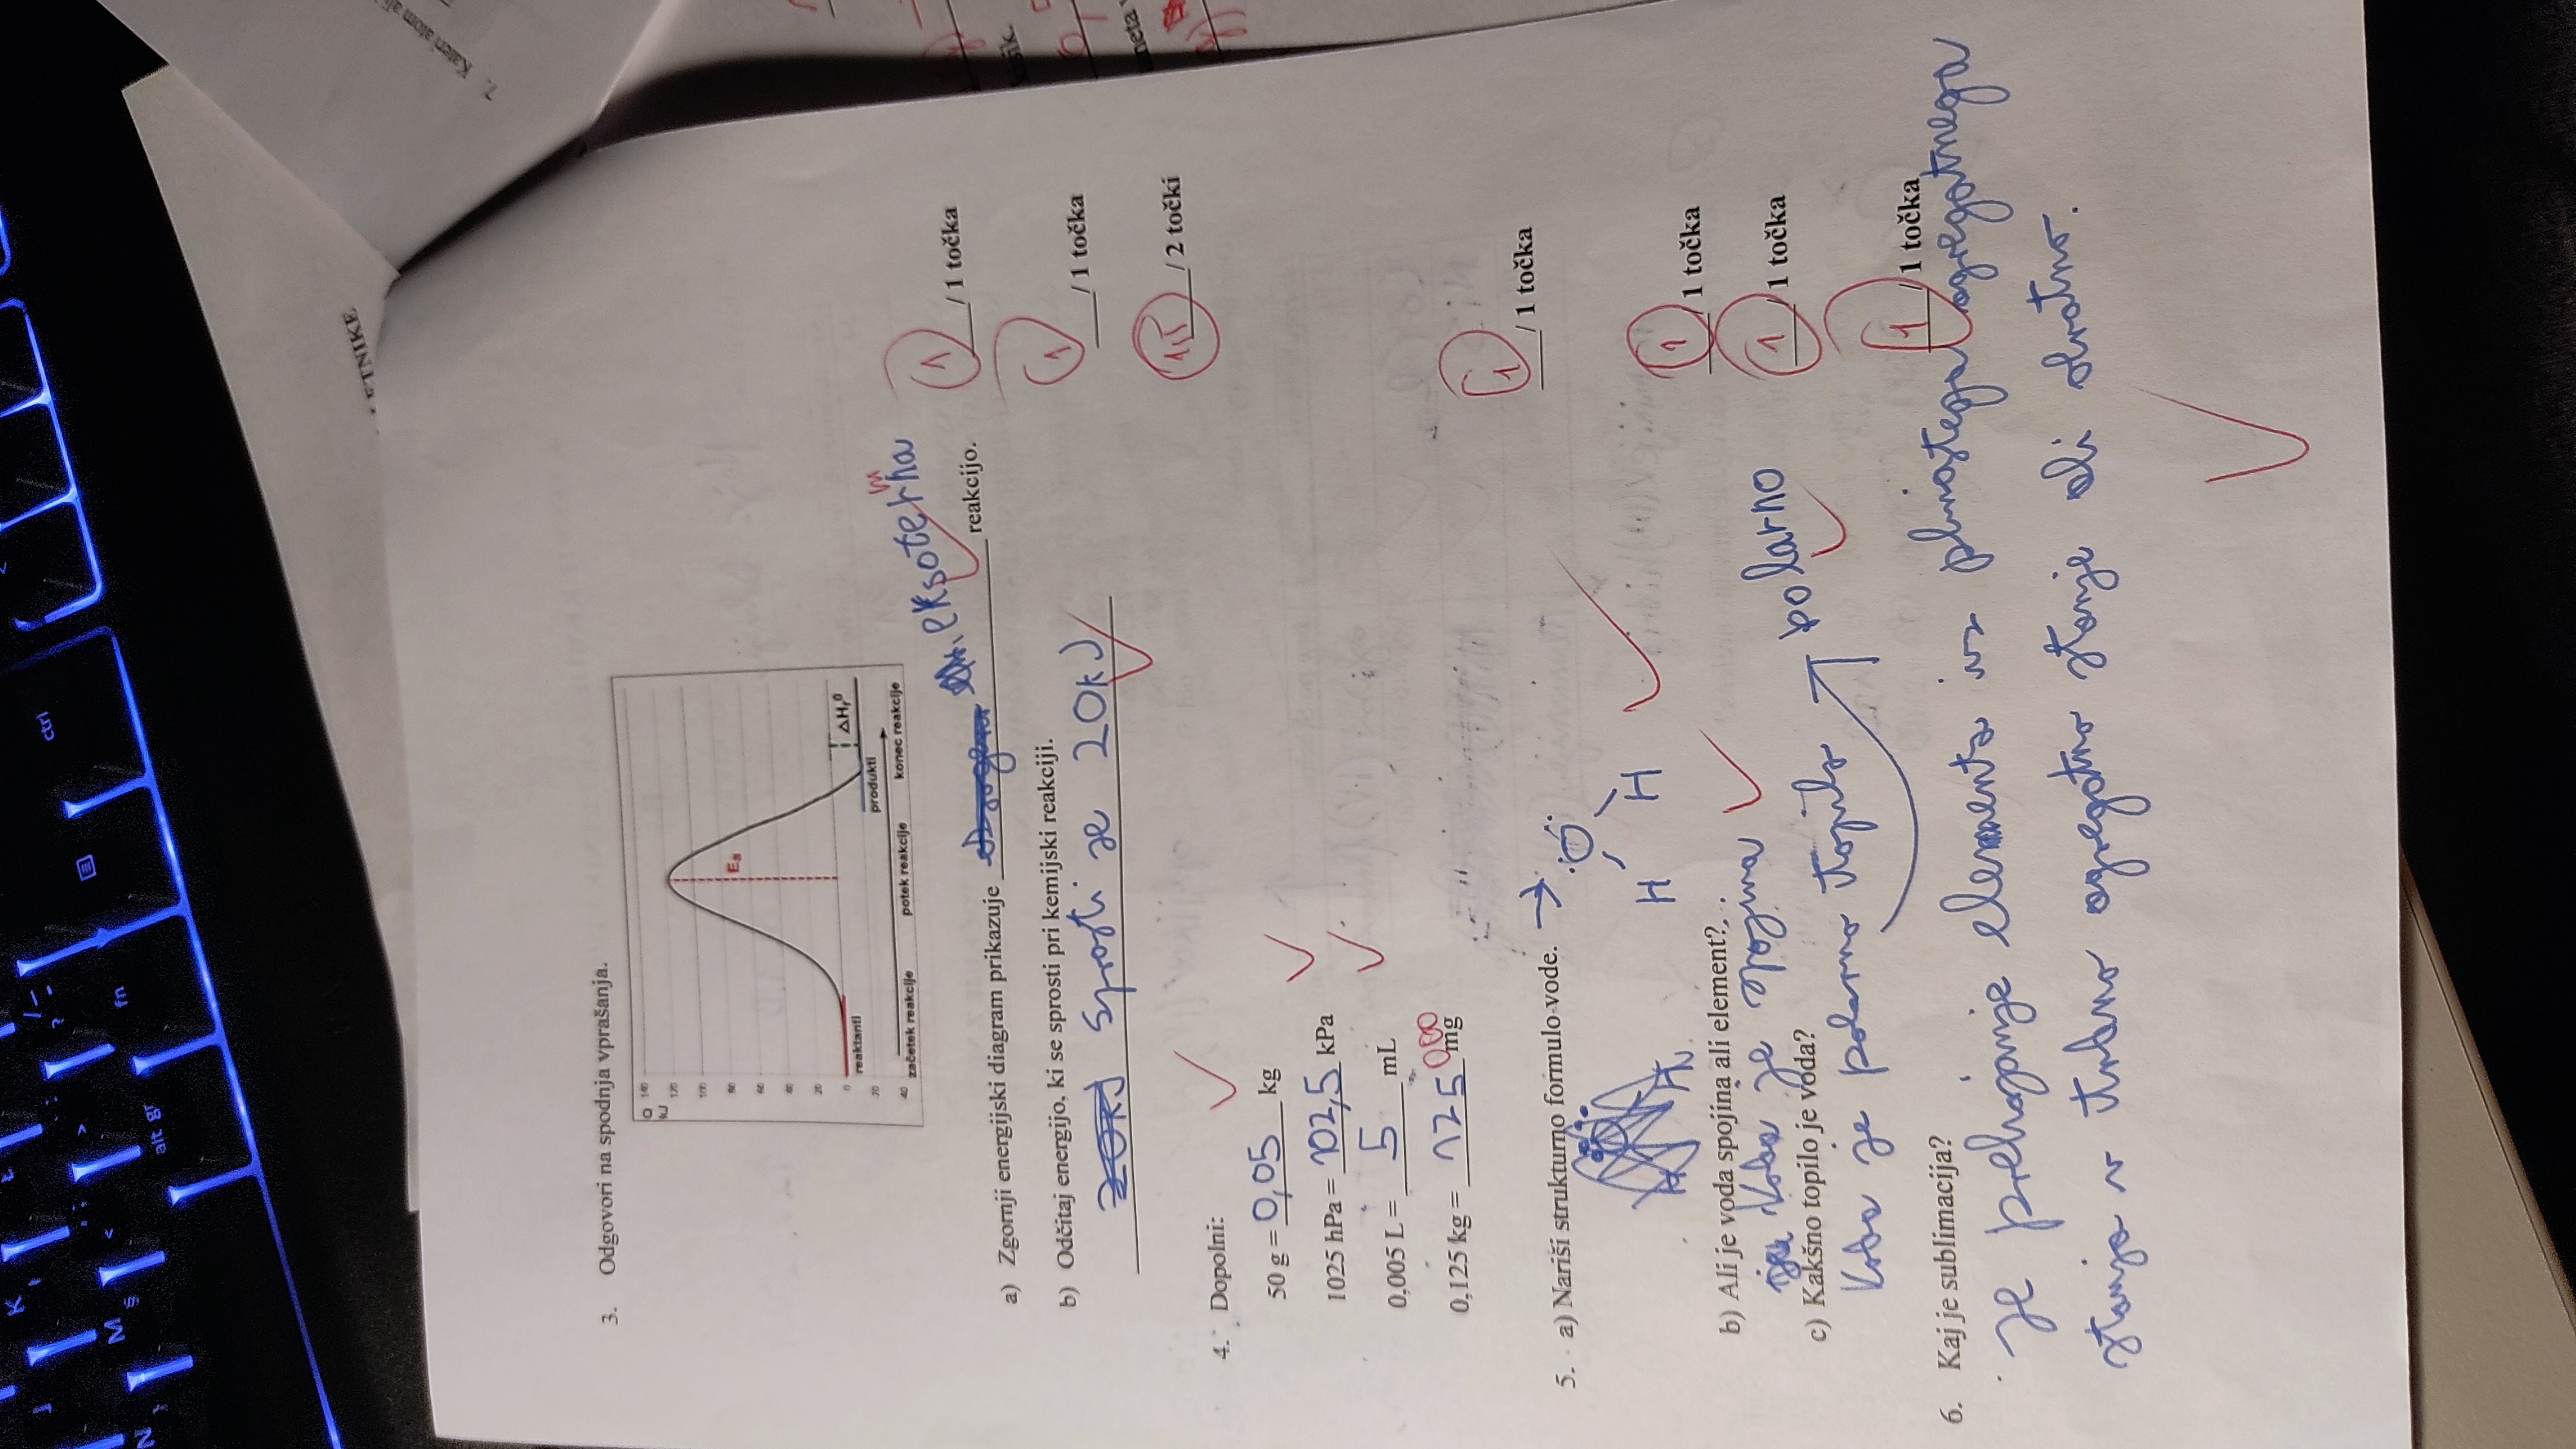 K
M
§
N
<
>
alt gr
fn
ctrl
LETNIKE
7. Kateri atom ali
3. Odgovori na spodnja vprašanja.
140
120
100
80
60
40
20
0
20
40
Ea
reaktanti
ΔHr⁰
produkti
začetek reakcije potek reakcije konec reakcije
m
eksoterna
a) Zgornji energijski diagram prikazuje reakcijo. 1 / 1 točka
b) Odčitaj energijo, ki se sprosti pri kemijski reakciji. 1 / 1 točka
20kJ Sprosti se 20kJ
4. Dopolni: 1,5 / 2 točki
50 g = 0,05 kg
1025 hPa = 102,5 kPa
0,005 L = 5 mL
0,125 kg = 125000 mg
5. a) Nariši strukturno formulo vode. → 1 / 1 točka
O
H H
b) Ali je voda spojina ali element? 1 / 1 točka
Voda je spojina
c) Kakšno topilo je voda? 1 / 1 točka
Voda je polarno topilo polarno
6. Kaj je sublimacija? 1 / 1 točka
Je prehajanje elementa iz plinastega agregatnega
stanja v trdno agregatno stanje ali obratno.